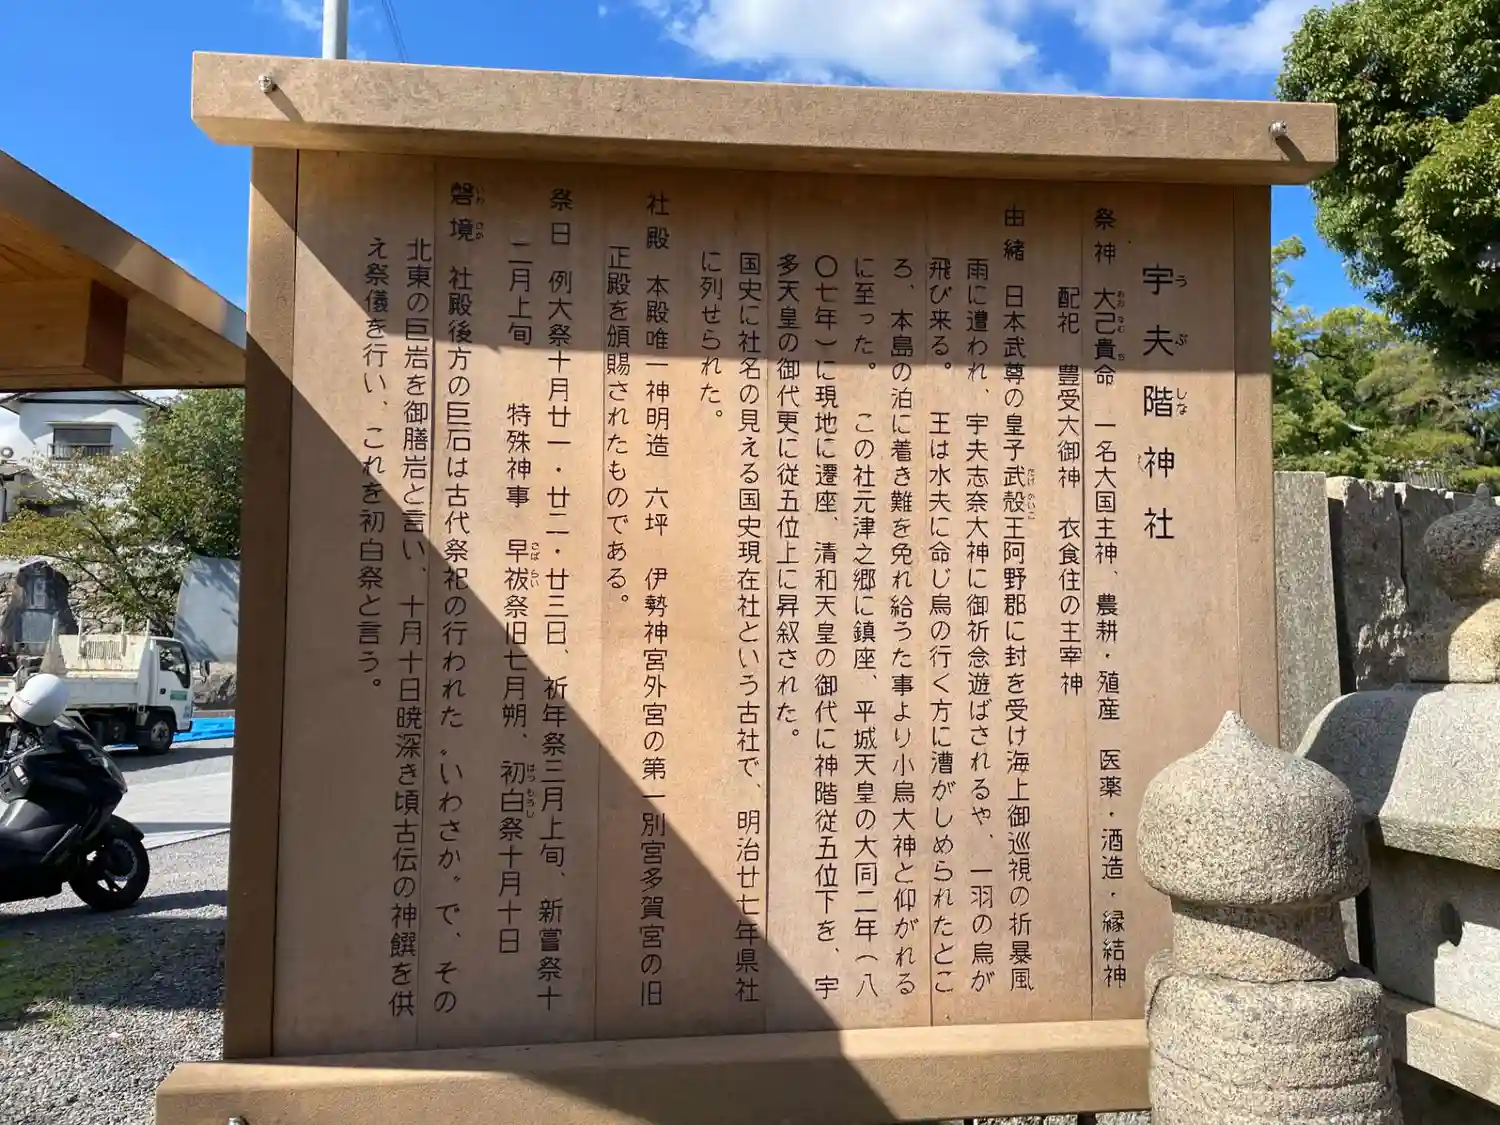 宇夫階神社
祭神 大己貴命 一名大国主神、農耕・殖産 医薬・酒造・縁結神
配祀 豊受大御神 衣食住の主宰神
由緒 日本武尊の皇子武殻王阿野郡に封を受け海上御巡視の折暴風
雨に遭われ、宇夫志奈大神に御祈念遊ばされるや、一羽の烏が
飛び来る。 王は水夫に命じ烏の行く方に漕がしめられたとこ
ろ、本島の泊に着き難を免れ給うた事より小烏大神と仰がれる
に至った。 この社元津之郷に鎮座、平城天皇の大同二年(八
〇七年)に現地に遷座、清和天皇の御代に神階従五位下を、宇
多天皇の御代更に従五位上に昇叙された。
国史に社名の見える国史現在社という古社で、明治廿七年県社
に列せられた。
社殿 本殿唯一神明造 六坪 伊勢神宮外宮の第一別宮多賀宮の旧
正殿を頒賜されたものである。
祭日 例大祭十月廿一・廿二・廿三日、祈年祭三月上旬、新嘗祭十
二月上旬 特殊神事 早祓祭旧七月朔、初白祭十月十日
磐境 社殿後方の巨石は古代祭祀の行われた〝いわさか〟で、その
北東の巨岩を御膳岩と言い、十月十日暁深き頃古伝の神饌を供
え祭儀を行い、これを初白祭と言う。